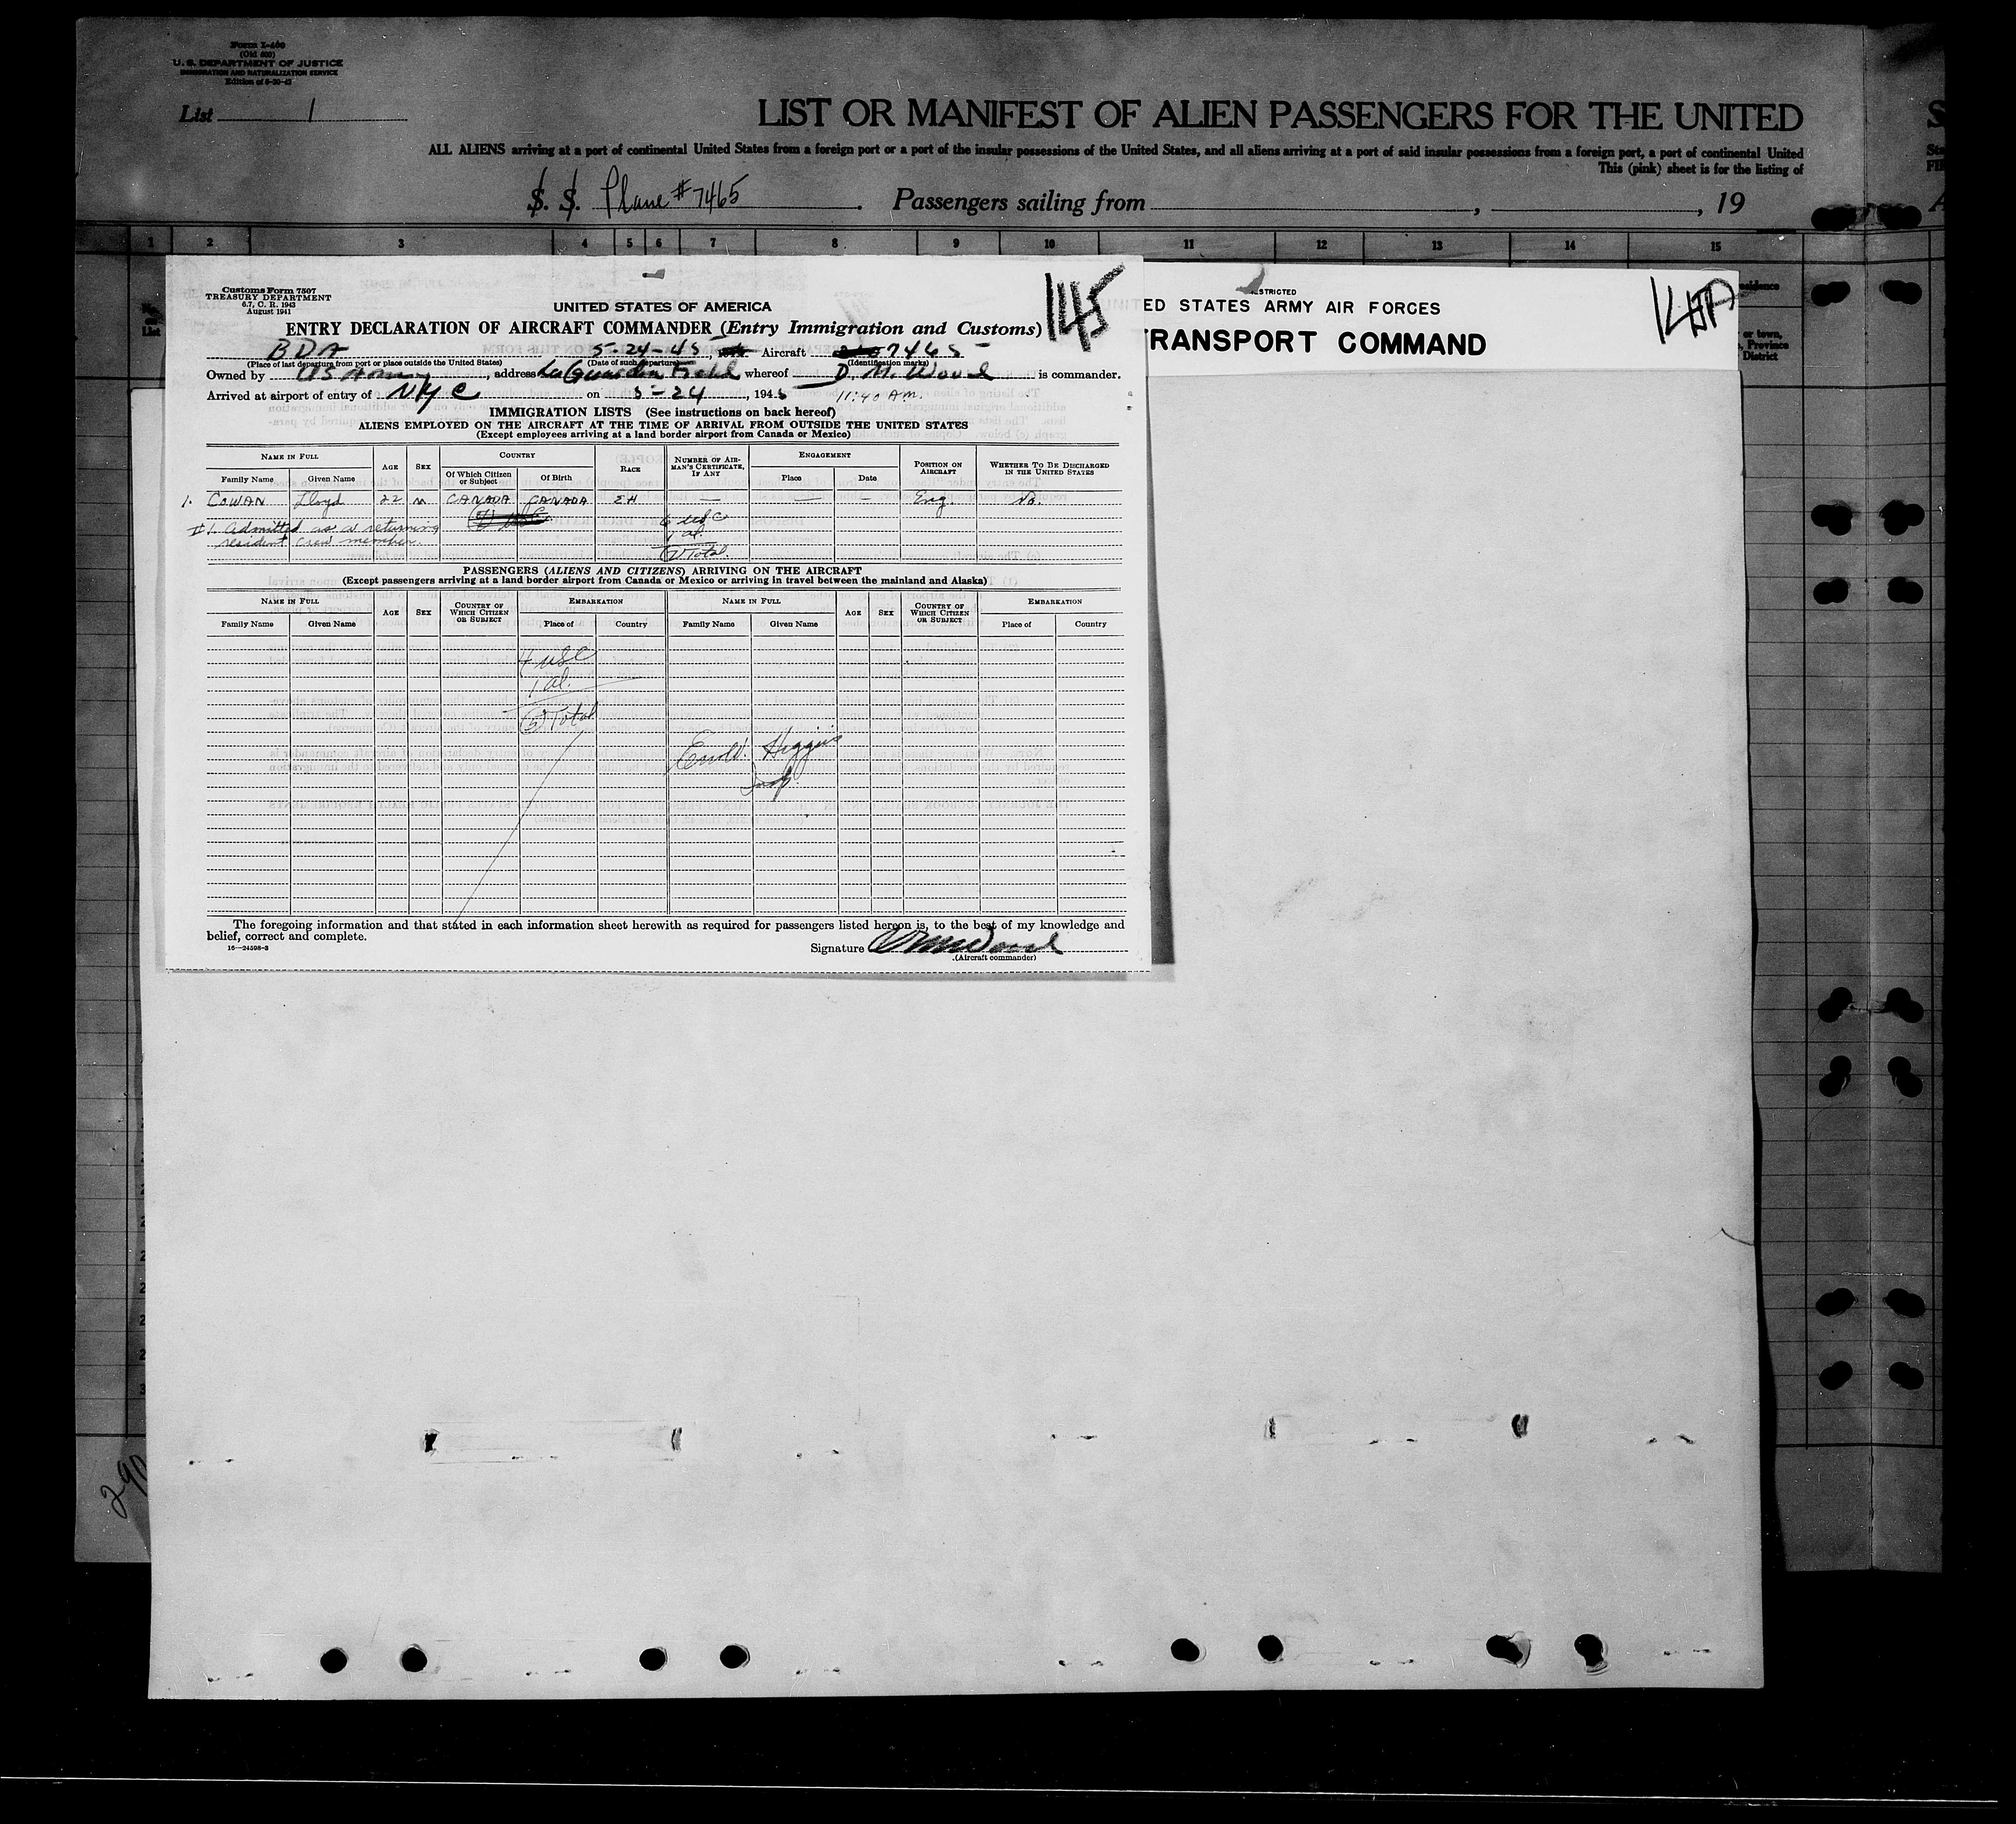 Form I-400
(Old 500)
U. S. DEPARTMENT OF JUSTICE
IMMIGRATION AND NATURALIZATION SERVICE
List 1
LIST OR MANIFEST OF ALIEN PASSENGERS FOR THE UNITED
ALL ALIENS arriving at a port of continental United States from a foreign port or a port of the insular possessions of the United States, and all aliens arriving at a port of said insular possessions from a foreign port, a port of continental United
This (pink) sheet is for the listing of
S. S. Plane #7465. Passengers sailing from , , 19
1 2 3 4 5 6 7 8 9 10 11 12 13 14 15
Customs Form 7507
TREASURY DEPARTMENT
6.7, C. R. 1943
August 1941
UNITED STATES OF AMERICA
145
ENTRY DECLARATION OF AIRCRAFT COMMANDER (Entry Immigration and Customs)
BDA 5-24-45, Aircraft 7465
(Place of last departure from port or place outside the United States) (Date of such departure) (Identification marks)
Owned by US Army, address LaGuardia Field whereof D. M. Wood is commander.
Arrived at airport of entry of NYC on 5-24, 1945 11:40 AM.
IMMIGRATION LISTS (See instructions on back hereof)
ALIENS EMPLOYED ON THE AIRCRAFT AT THE TIME OF ARRIVAL FROM OUTSIDE THE UNITED STATES
(Except employees arriving at a land border airport from Canada or Mexico)
NAME IN FULL AGE SEX COUNTRY RACE NUMBER OF AIRMAN'S CERTIFICATE, IF ANY ENGAGEMENT POSITION ON AIRCRAFT WHETHER TO BE DISCHARGED IN THE UNITED STATES
Family Name Given Name Of Which Citizen or Subject Of Birth Place Date
1. COWAN Lloyd 22 M CANADA CANADA EH — — — Eng. No.
#1. Admitted as a returning 6 usc
resident crew member. 1 al.
(7) Total.
PASSENGERS (ALIENS AND CITIZENS) ARRIVING ON THE AIRCRAFT
(Except passengers arriving at a land border airport from Canada or Mexico or arriving in travel between the mainland and Alaska)
NAME IN FULL AGE SEX COUNTRY OF WHICH CITIZEN OR SUBJECT EMBARKATION NAME IN FULL AGE SEX COUNTRY OF WHICH CITIZEN OR SUBJECT EMBARKATION
Family Name Given Name Place of Country Family Name Given Name Place of Country
4 usc
1 al.
(5) Total
Higgins
Insp.
The foregoing information and that stated in each information sheet herewith as required for passengers listed hereon is, to the best of my knowledge and
belief, correct and complete.
16—24598-3
Signature D M Wood
(Aircraft commander)
RESTRICTED
ED STATES ARMY AIR FORCES
TRANSPORT COMMAND
145A
or town,
Province
District
290